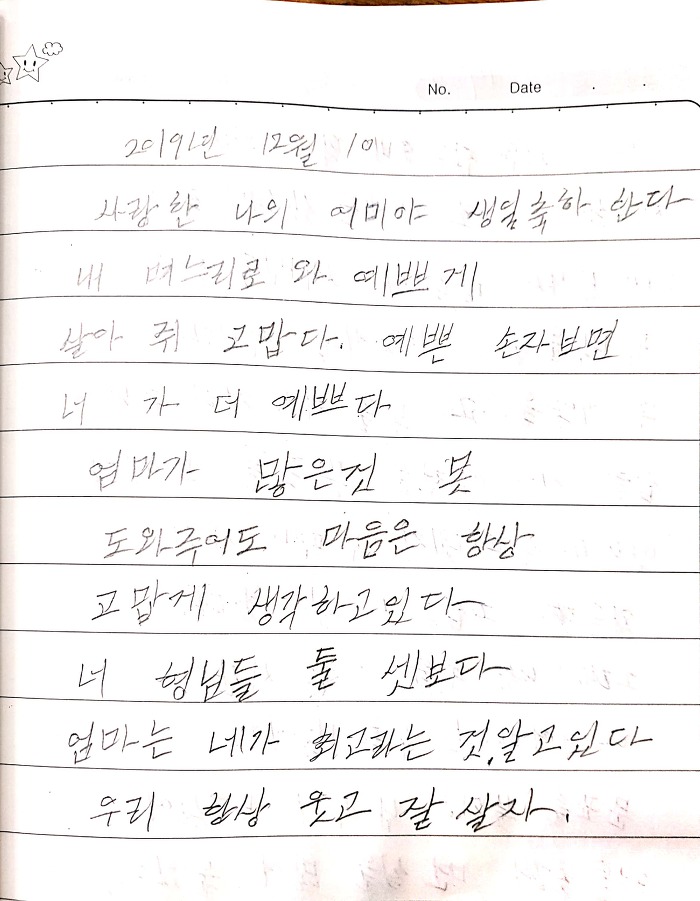 No. Date . .
2019년 12월 10
사랑한 나의 여미야 생일축하 한다
내 며느리로 와 예쁘게
살아 줘 고맙다. 예쁜 손자보면
너 가 더 예쁘다
엄마가 많은것 못
도와주어도 마음은 항상
고맙게 생각하고있다
너 형님들 둘 셋보다
엄마는 네가 최고라는 것.알고있다
우리 항상 웃고 잘 살자.